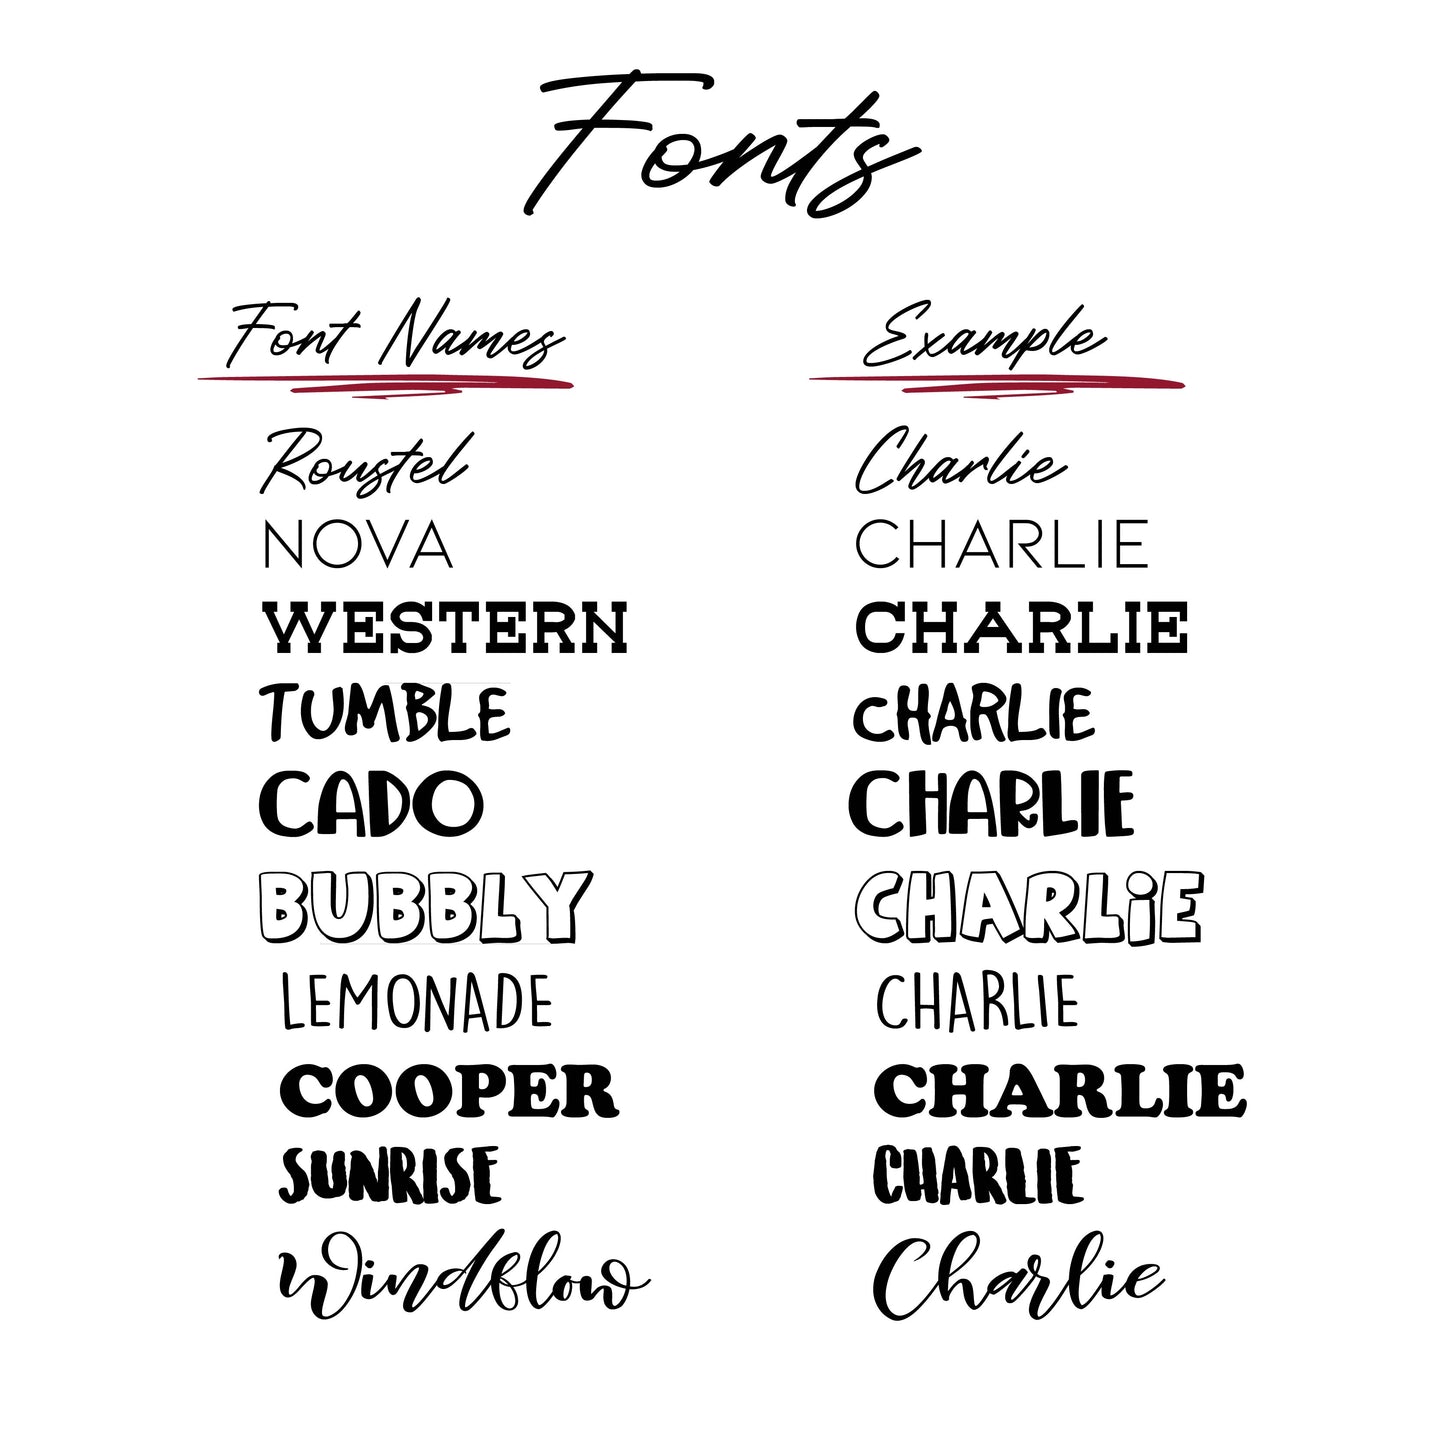 Fonts
Font Names Example
Roustel Charlie
NOVA CHARLIE
WESTERN CHARLIE
TUMBLE CHARLIE
CADO CHARLIE
BUBBLY CHARLiE
LEMONADE CHARLIE
COOPER CHARLIE
SUNRISE CHARLIE
Windflow Charlie